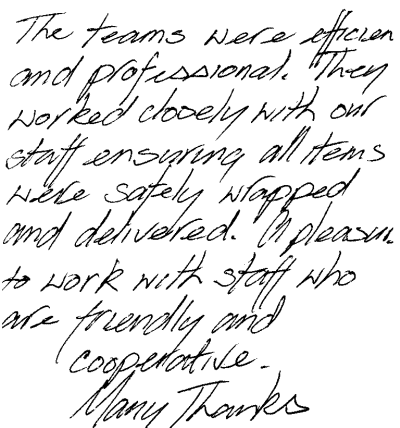 The teams were efficien
and professional. They
worked closely with our
staff ensuring all items
were safely wrapped
and delivered. A pleasure
to work with staff who
are friendly and
cooperative.
Many Thanks